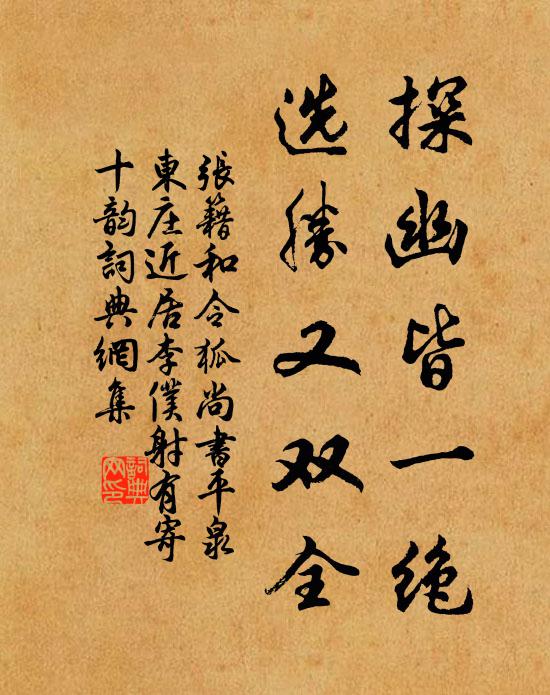 探幽皆一绝
选胜又双全
張籍和令狐尚書平泉
東庄近居李僕射有寄
十韵詞典網集
詞典
网印